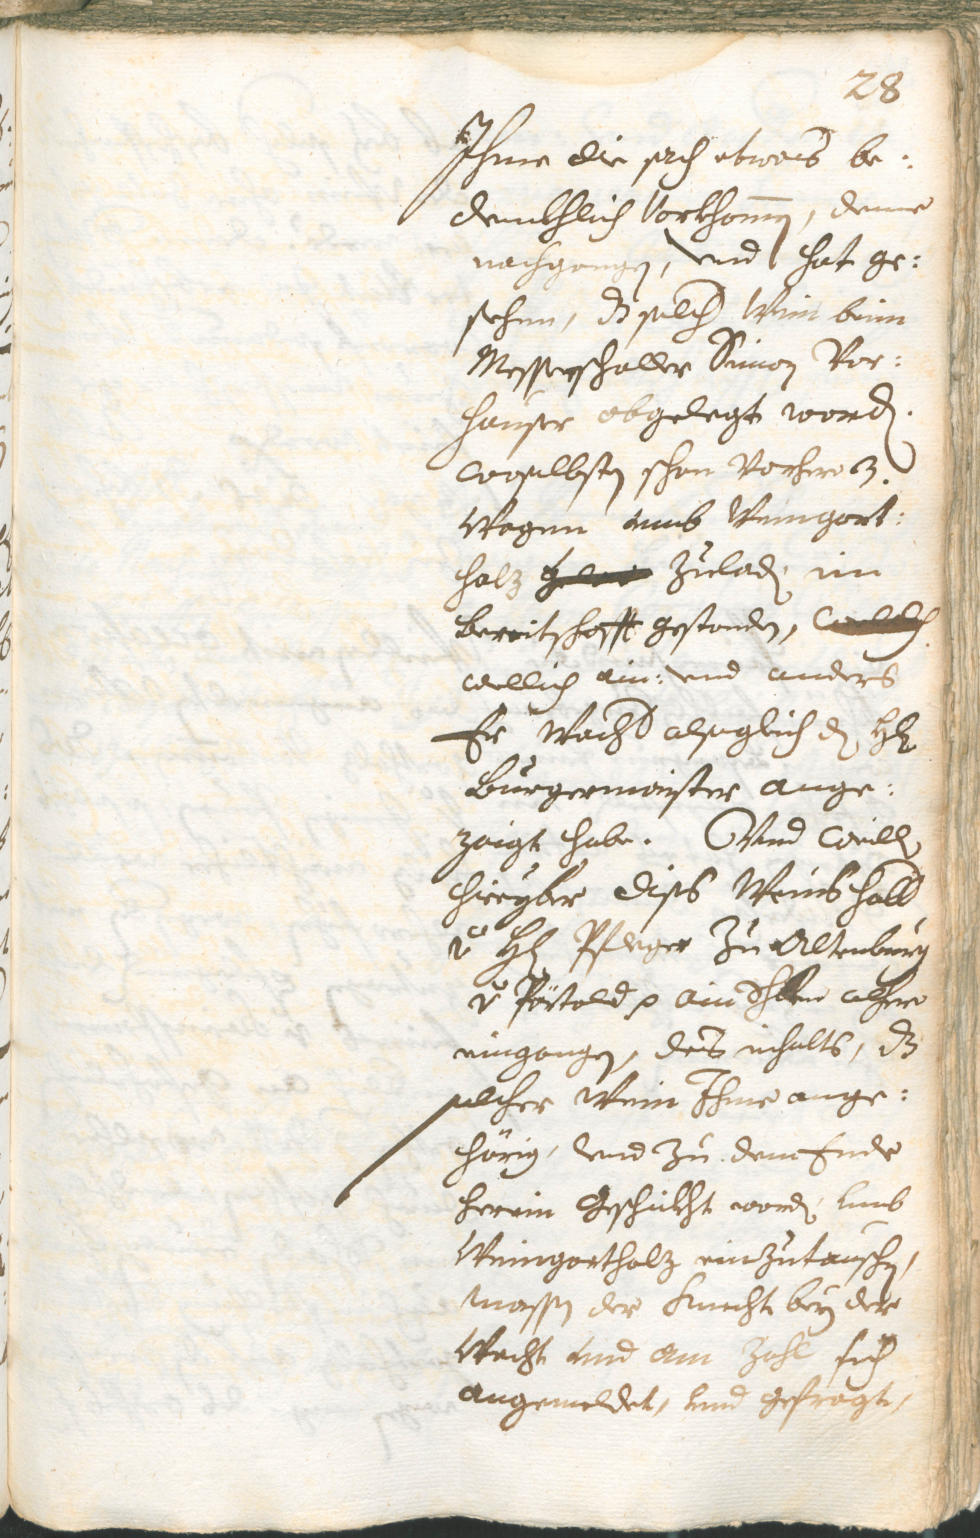 28
Ihme die sach etwas be:
denkhlich Vorkhomen, deme
nachgangen, vnd hat ge:
sehen, dz solch Wein beim
Messerschaller Simon Vor:
hauser abgelegt worden.
woselbsten schon Vorhero 3.
Wagen vmb Weingart:
holz zuladen in
bereitschafft gestanden,
wellich ain: vnd anders
Er Wacht alsogleich dem H:
Burgermaister ange:
zaigt habe. Vnd weillen
hieryber diss Weins halb
v H: Pfleger zu Altenburg
v ain alhero
eingangen, des inhalts, dz
solcher Wein Ihme ange:
hörig, vnd zu dem Ende
herein geschikht worden, vmb
Weingartholz einzutauschen,
massen der Knecht bey der
Wacht vnd am Zohl sich
angemeldet, vnd gefragt,